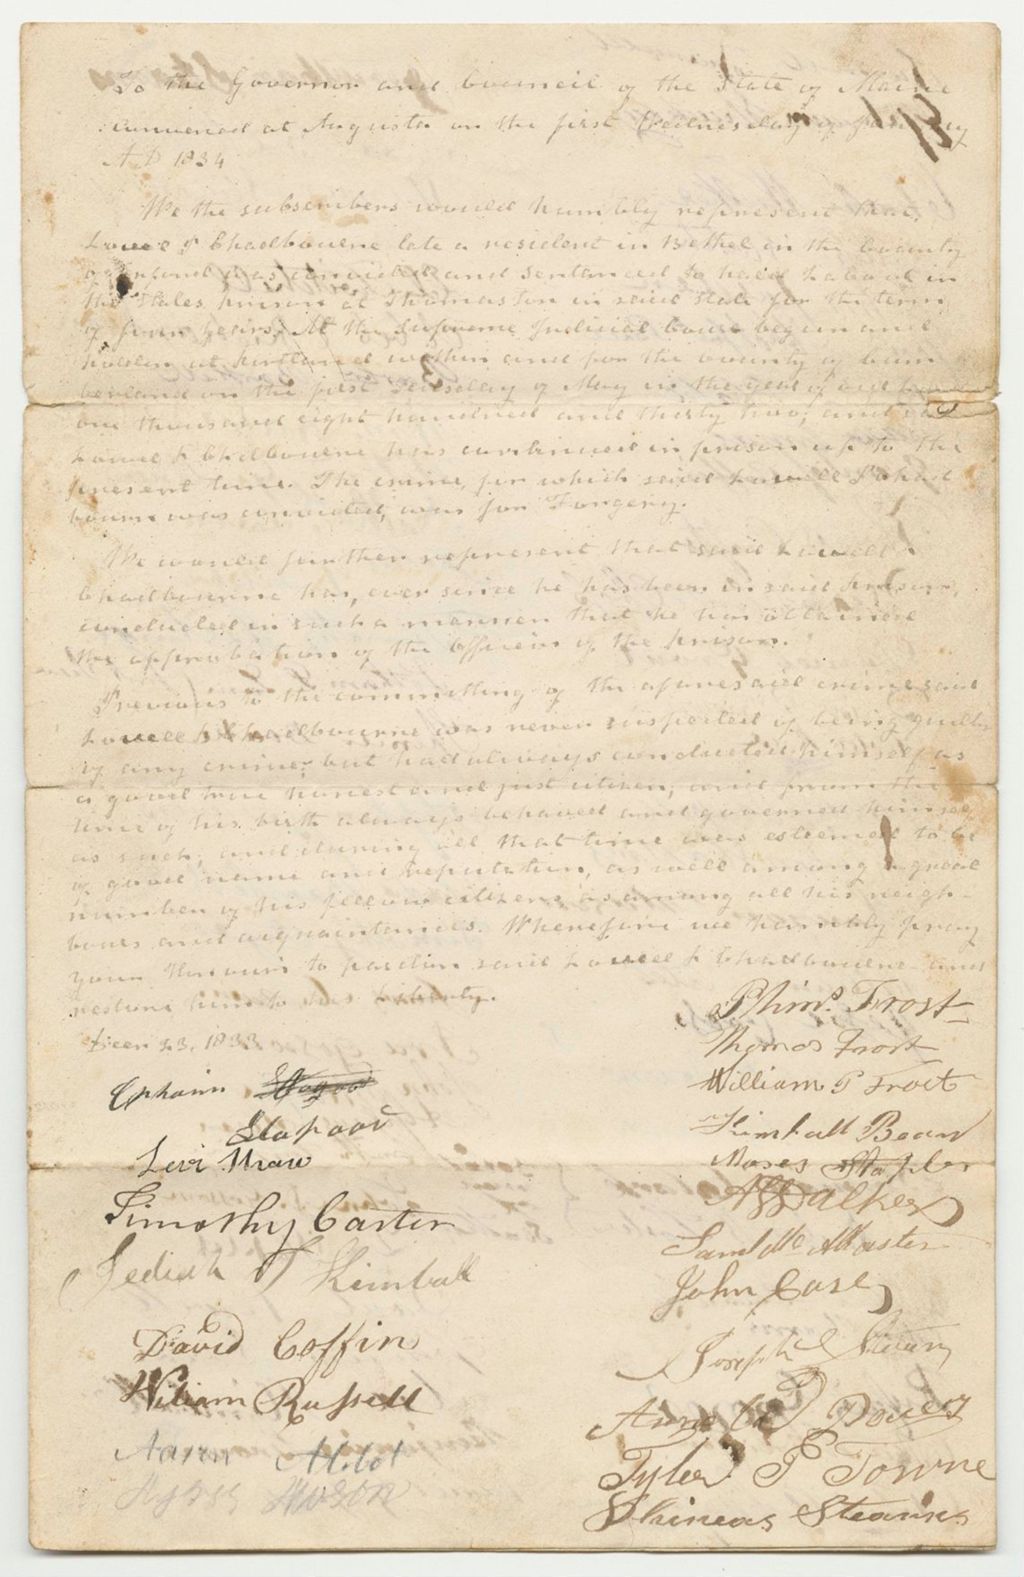 To the Governor and Council of the State of Maine
convened at Augusta on the first Wednesday of January
A.D 1834
We the subscribers would humbly represent that
Lowell P Chadbourne late a resident in Bethel in the County
of Oxford was convicted and sentenced to hard Labour in
the States prison at Thomaston in said State for the term
of four years, At the Supreme Judicial Court begun and
holden at Portland within and for the county of Cum
berland on the first Tuesday of May in the year of our Lord
one thousand eight hundred and thirty two; and said
Lowell P Chadbourne has continued in prison up to the
present time. The crime, for which said Lowell P Chad
bourn was convicted, was for Forgery.
We would further represent that said Lowell P
Chadbourne has, ever since he has been in said prison,
conducted in such a manner that he has obtained
the approbation of the Officers of the prison.
Previous to the committing of the aforesaid crime said
Lowell P Chadbourne was never suspected of being guilty
of any crime, but had always conducted himself as
a good true honest and just citizen, and from the
time of his birth always behaved and governed himself
as such, and during all that time was esteemed to be
of good name and reputation, as well among a great
number of his fellow citizens as among all his neigh-
bours and acquaintances. Wherefore we humbly pray
your Honours to pardon said Lowell P Chadbourne and
restore him to his Liberty.
Decem 23, 1833
Phins Frost
Thomas Frost
William P Frost
Kimball Bean
Moses Stapler
Walker
Saml Mc Master
John Case
Joseph Stearns
Powers
Tyler P Towne
Phineas Stearns
Ephraim
Levi Shaw
Timothy Carter
Jedediah T Kimball
David Coffin
William Russell
Aaron Abbot
Moses Mason